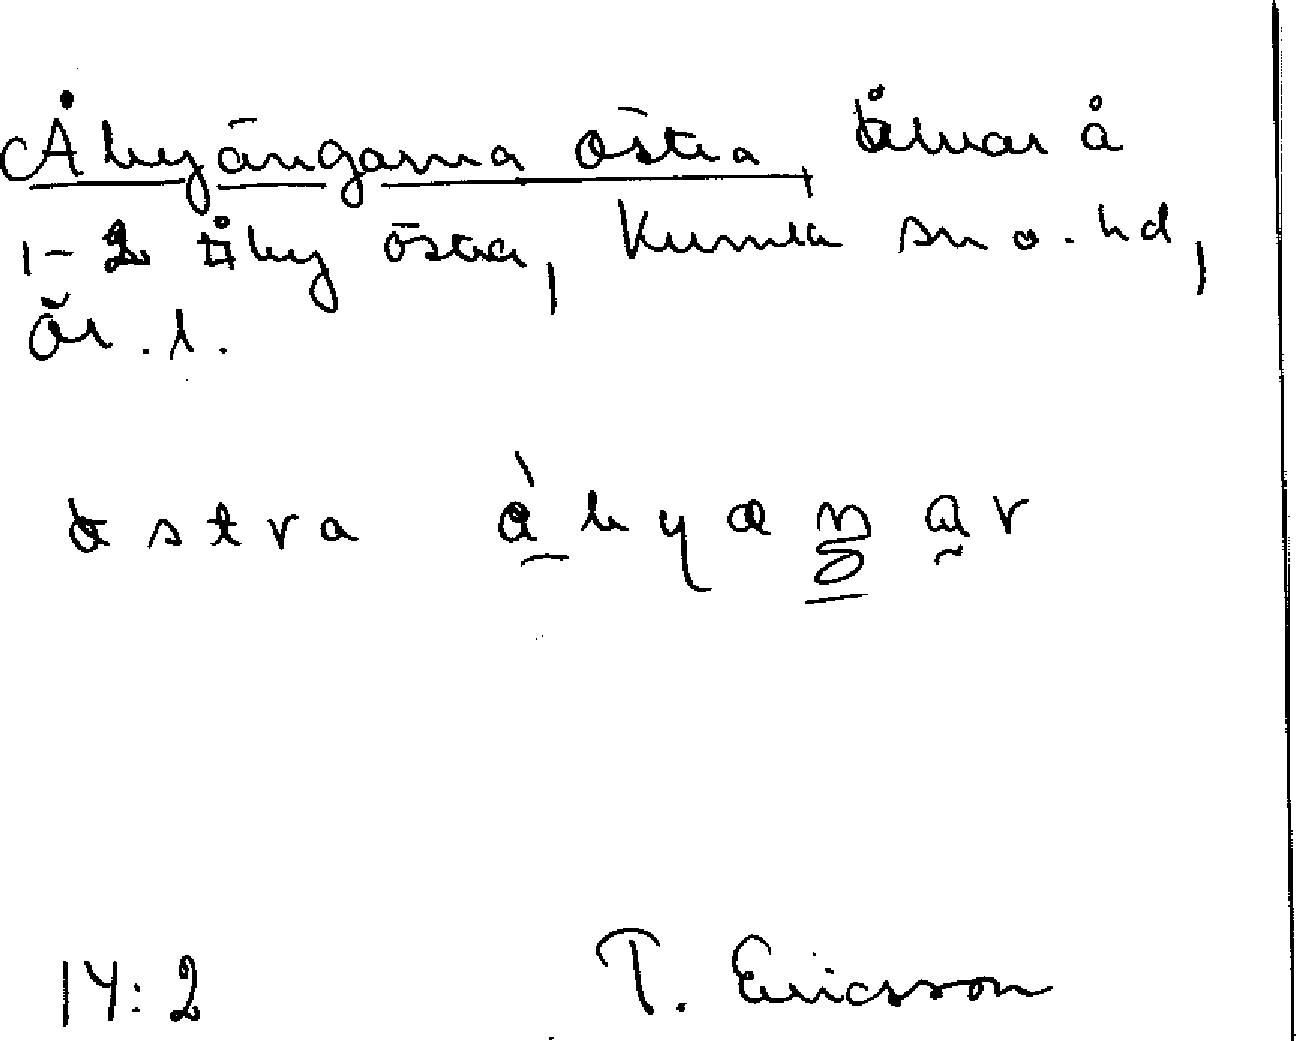 Åbyängarna östra, åkrar å
1-2 Åby östra, Kumla sn o. hd,
Är. l.
östra åbyäŋar
14:2 T. Ericsson